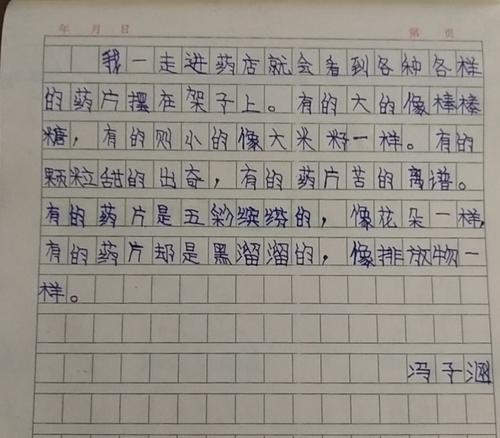 年 月 日 第 页
我一走进药店就会看到各种各样
的药片摆在架子上。有的大的像棒棒
糖，有的则小的像大米籽一样。有的
颗粒甜的出奇，有的药片苦的离谱。
有的药片是五彩缤纷的，像花朵一样，
有的药片却是黑溜溜的，像排放物一
样。
冯子涵